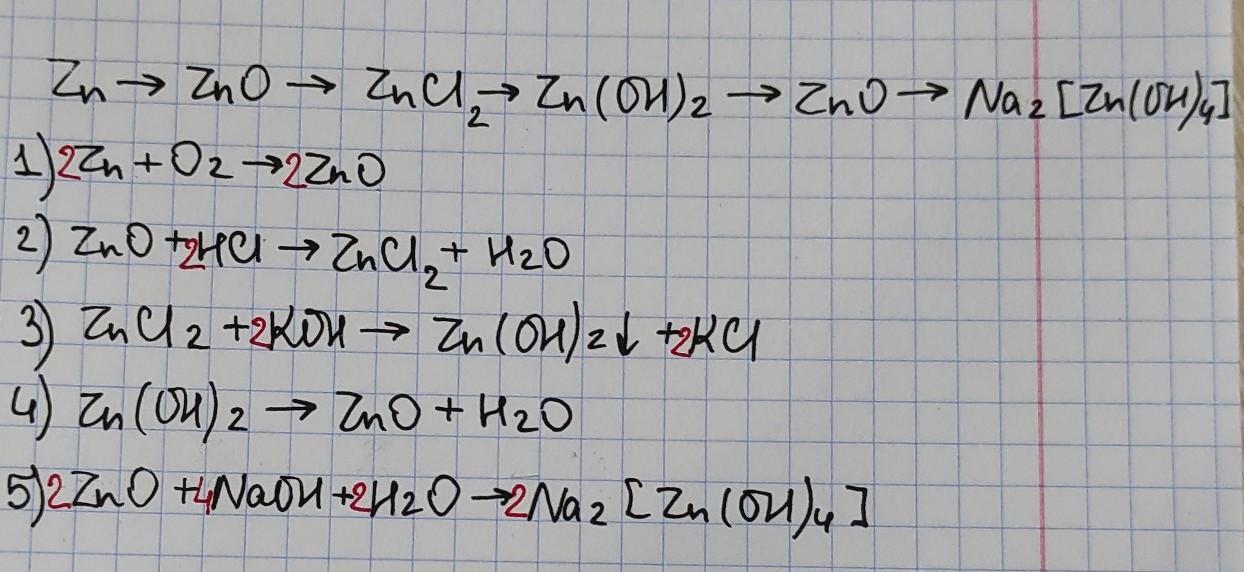 Zn → ZnO → ZnCl₂ → Zn(OH)₂ → ZnO → Na₂[Zn(OH)₄]
1) 2Zn + O₂ → 2ZnO
2) ZnO + 2HCl → ZnCl₂ + H₂O
3) ZnCl₂ + 2KOH → Zn(OH)₂↓ + 2KCl
4) Zn(OH)₂ → ZnO + H₂O
5) 2ZnO + 4NaOH + 2H₂O → 2Na₂[Zn(OH)₄]